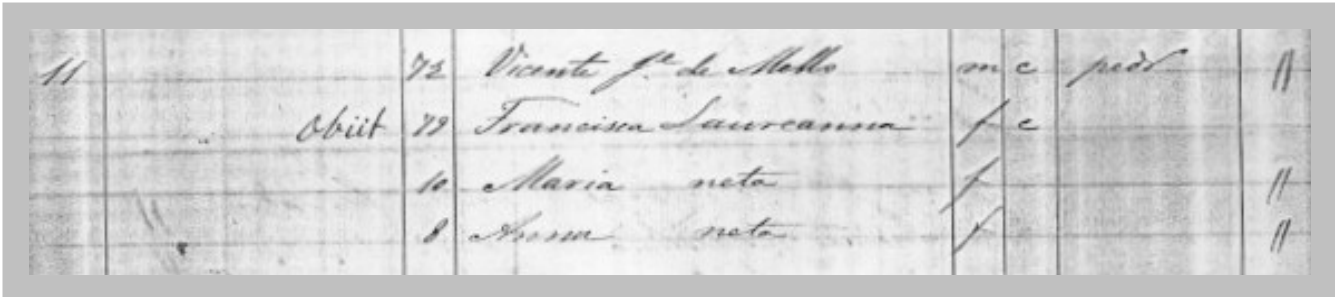 11 72 Vicente Je de Mello m c pedr //
Obiit 79 Francisca Laureanna f c
10 Maria neta f //
8 Anna neta f //